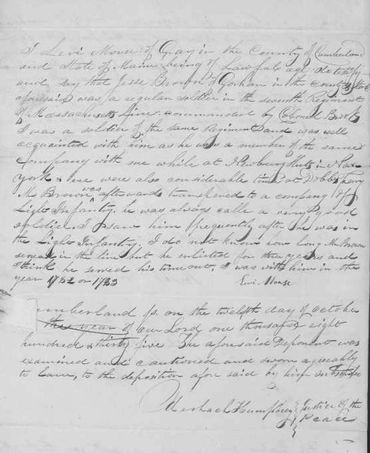 I Levi Morse of Gray in the County of Cumberland
and State of Maine being of Lawful age do testify
and say that Jesse Brown of Gorham in the County &
aforesaid was a regular soldier in the seventh Regiment
of Massachusetts line commanded by Colonel Brooks
I was a soldier of the same Regiment and was well
acquainted with him as he was a member of the same
Company with me while at Newburg Huts in New
york & we were also considerable time at Dobbs ferry
Mr Brown was afterwards transfered to a company of
Light Infantry. he was always calld a very good
soldier. I saw him frequently after he was in
the Light Infantry, I do not know how long Mr Brown
served in the line but he enlisted for three years and
I think he served his time out, I was with him in the
year 1782 or 1783
Levi Morse
Cumberland ss. on the twelfth day of october
the year of our Lord one thousand eight
hundred & thirty five the aforesaid Deponent was
examined and cautioned and sworn agreeably
to Law, to the deposition afore said by him
Meshach Humphrey Justice of the
Peace